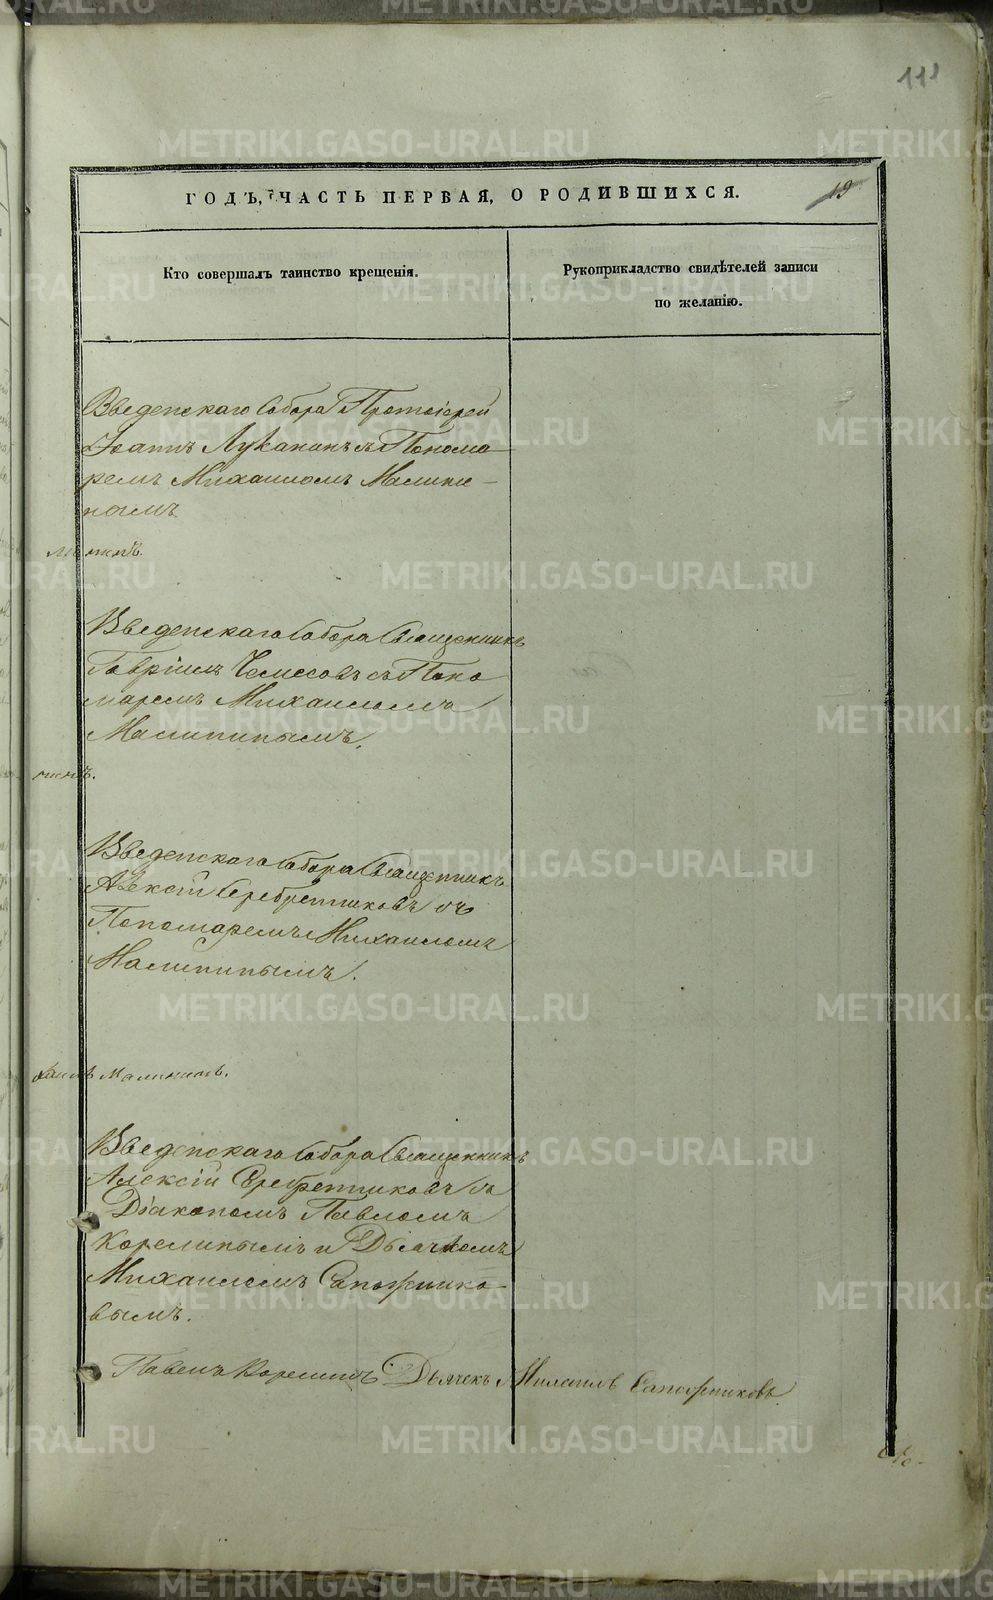 111
19
ГОДЪ, ЧАСТЬ ПЕРВАЯ, О РОДИВШИХСЯ.
Кто совершалъ таинство крещенія.
Рукоприкладство свидѣтелей записи
по желанію.
Введенскаго Собора Протоіерей
Іоаннъ Луканинъ съ Понома-
ремъ Михаиломъ Малини-
нымъ
Введенскаго Собора Священникъ
Гавріилъ Чемесовъ съ Поно
маремъ Михаиломъ
Малининымъ.
Введенскаго Собора Священникъ
Алексій Серебренниковъ съ
Пономаремъ Михаиломъ
Малининымъ.
Малининъ.
Введенскаго Собора Священникъ
Алексій Серебренниковъ съ
Діакономъ Павломъ
Корелинымъ и Дьячкомъ
Михаиломъ Сапожнико-
вымъ.
Павелъ Корелинъ Дьячекъ Михаилъ Сапожниковъ
METRIKI.GASO-URAL.RU